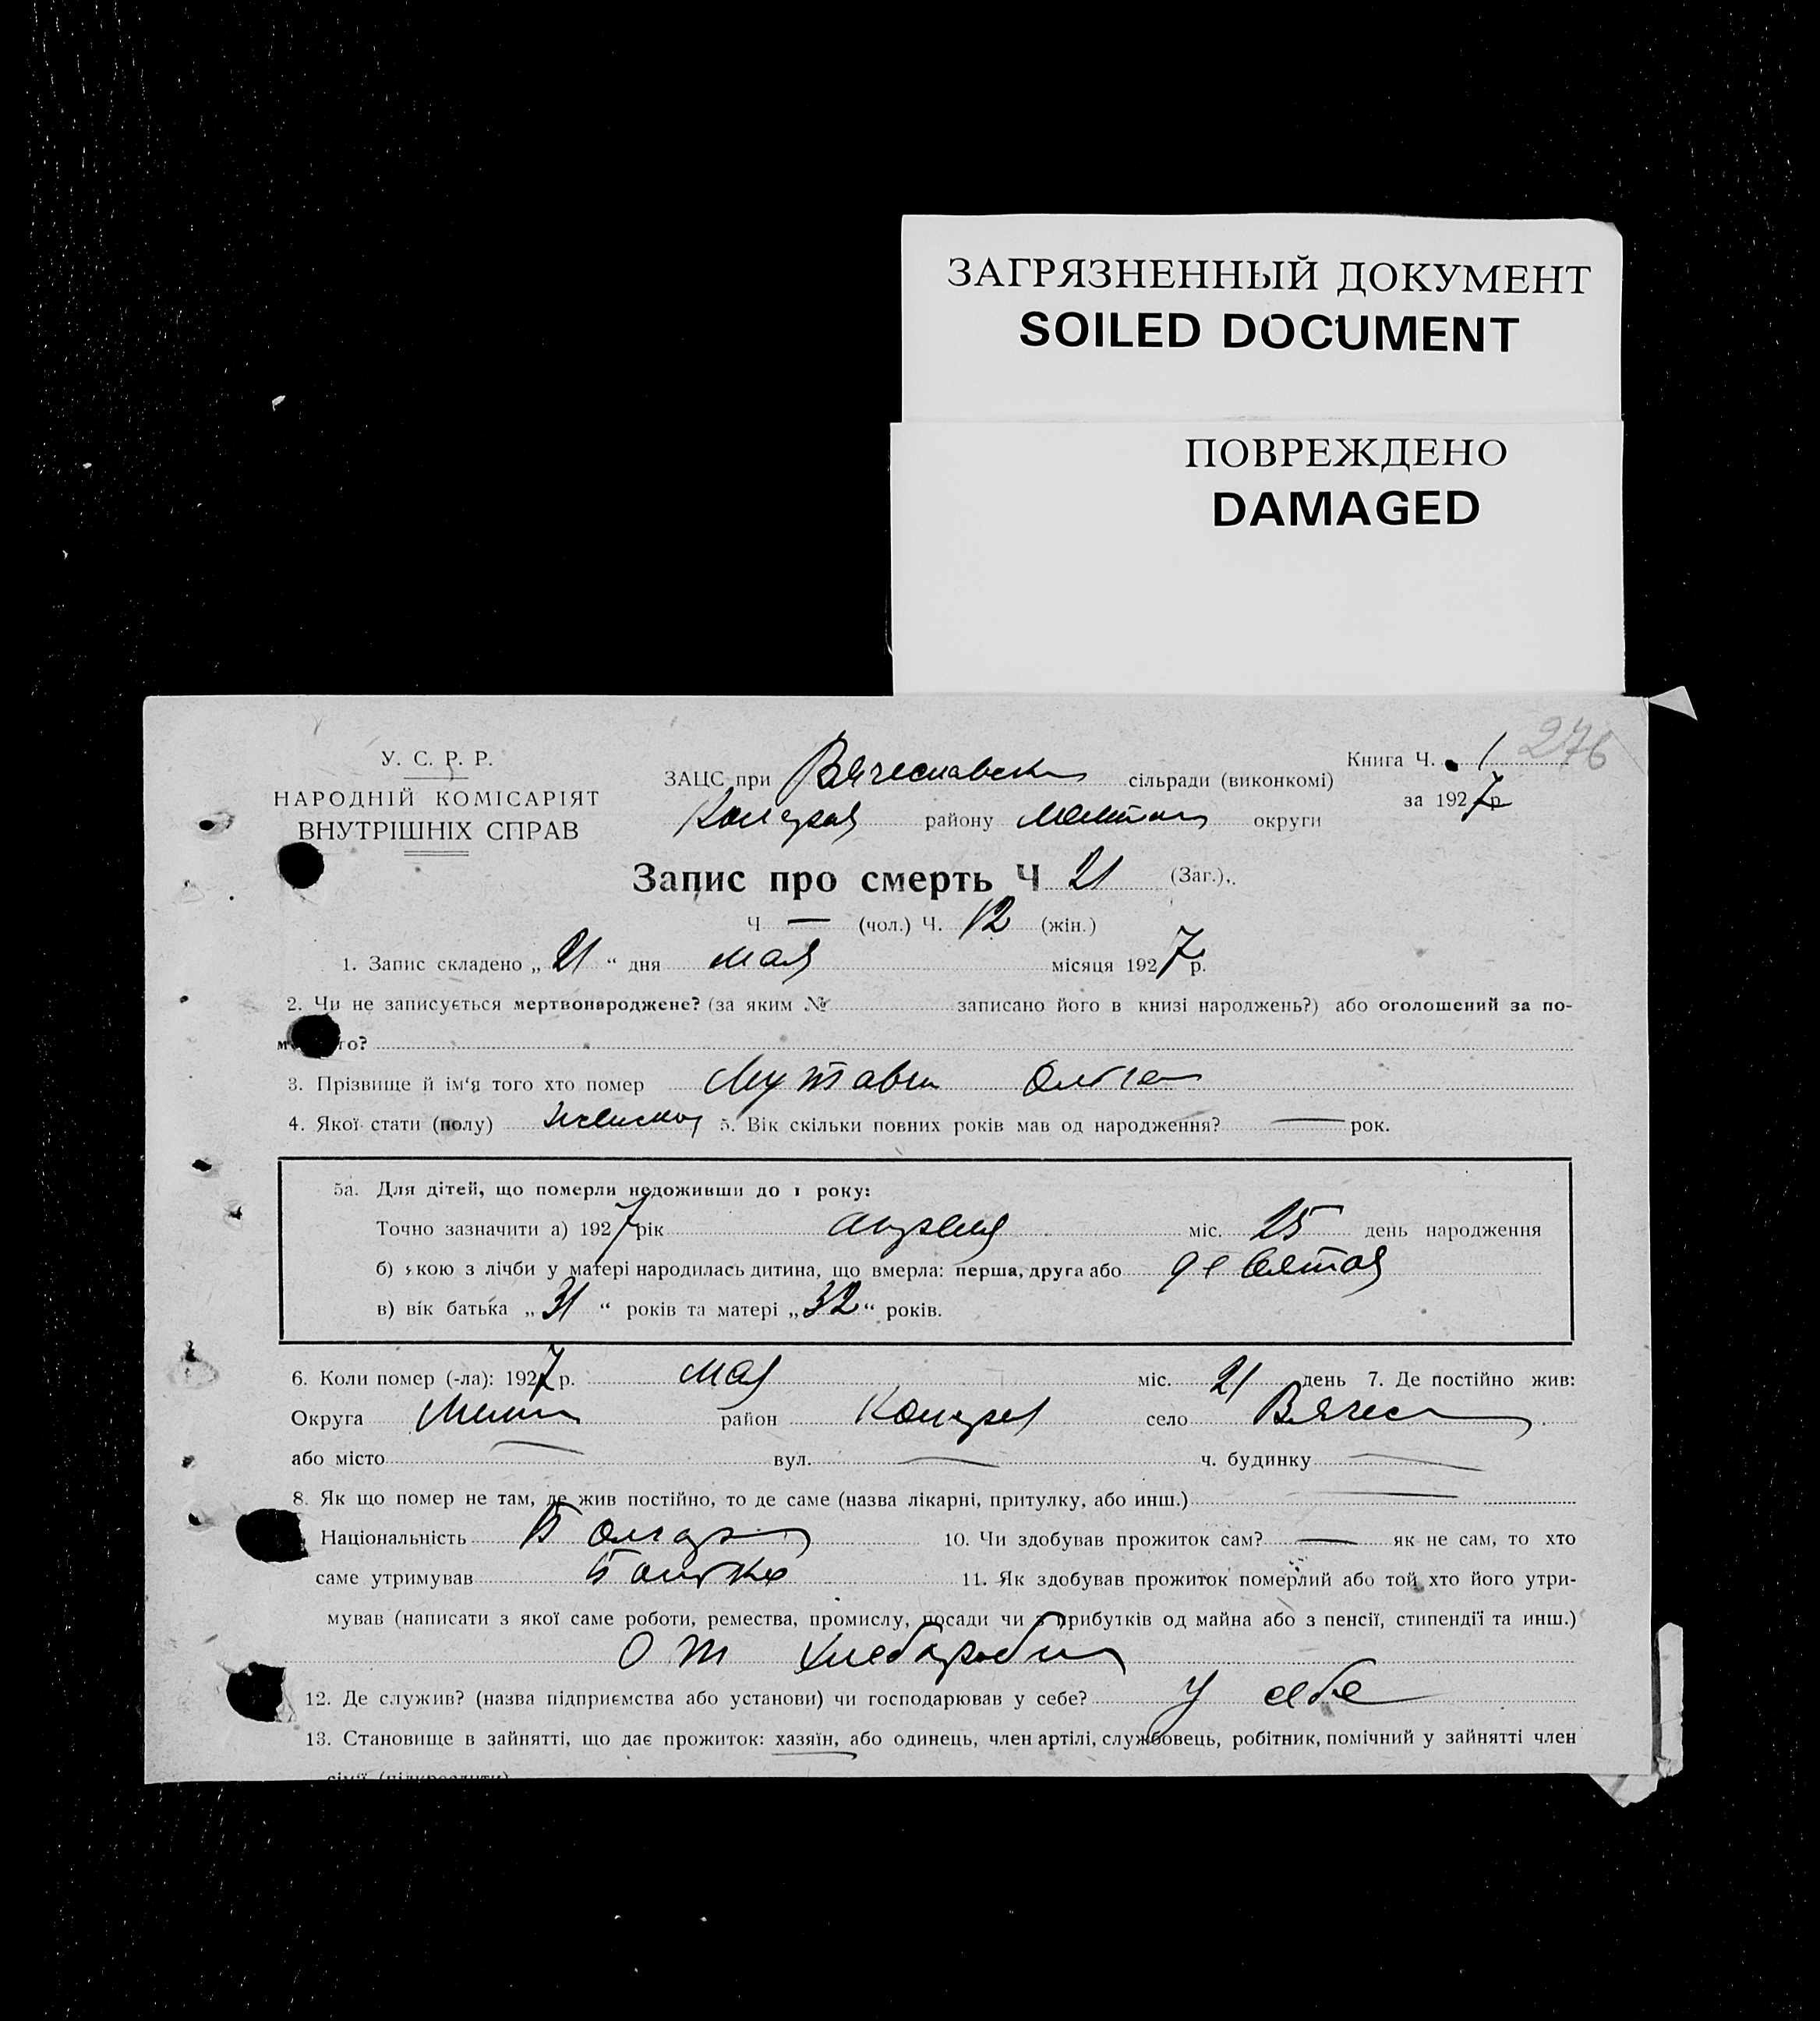 ЗАГРЯЗНЕННЫЙ ДОКУМЕНТ
SOILED DOCUMENT
ПОВРЕЖДЕНО
DAMAGED
276
У. С. Р. Р.
НАРОДНІЙ КОМІСАРІЯТ
ВНУТРІШНІХ СПРАВ
Книга Ч. 1
за 1927 р
ЗАЦС при Вячеславск сільради (виконкомі)
району округи
Запис про смерть Ч 21 (Заг.)
Ч — (чол.) Ч. 12 (жін.)
1. Запис складено „ 21 “ дня мая місяця 1927 р.
2. Чи не записується мертвонароджене? (за яким № записано його в книзі народжень?) або оголошений за по-
го?
3. Прізвище й ім‘я того хто помер Ольга
4. Якої стати (полу) женской 5. Вік скільки повних років мав од народження? — рок.
5а. Для дітей, що померли недоживши до 1 року:
Точно зазначити а) 1927 рік апреля міс. 25 день народження
б) якою з лічби у матері народилась дитина, що вмерла: перша, друга або девятая
в) вік батька „ 31 “ років та матері „ 32 “ років.
6. Коли помер (-ла): 1927 р. мая міс. 21 день 7. Де постійно жив:
Округа район село Вячес
або місто — вул. — ч. будинку —
8. Як що помер не там, де жив постійно, то де саме (назва лікарні, притулку, або инш.) —
Національність Болгар 10. Чи здобував прожиток сам? — як не сам, то хто
саме утримував Батько 11. Як здобував прожиток померлий або той хто його утри-
мував (написати з якої саме роботи, ремества, промислу, посади чи з прибутків од майна або з пенсії, стипендії та инш.)
От хлеборобст
12. Де служив? (назва підприємства або установи) чи господарював у себе? У себе
13. Становище в зайнятті, що дає прожиток: хазяїн, або одинець, член артілі, службовець, робітник, помічний у зайнятті член
сімї (підкреслити)